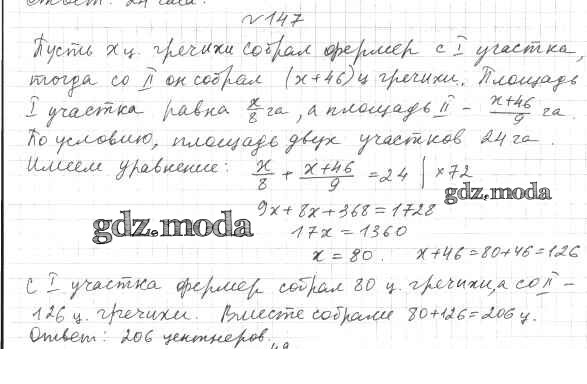 Ответ: 24 часа.
№147
Пусть x ц. гречихи собрал фермер с I участка,
тогда со II он собрал (x+46) ц гречихи. Площадь
I участка равна x/8 га, а площадь II – x+46/9 га.
По условию, площадь двух участков 24 га.
Имеем уравнение: x/8 + x+46/9 = 24 | ×72
gdz.moda
9x+8x+368=1728
gdz.moda
17x=1360
x=80. x+46=80+46=126
С I участка фермер собрал 80 ц. гречихи, а со II –
126 ц. гречихи. Вместе собрали 80+126=206 ц.
Ответ: 206 центнеров.